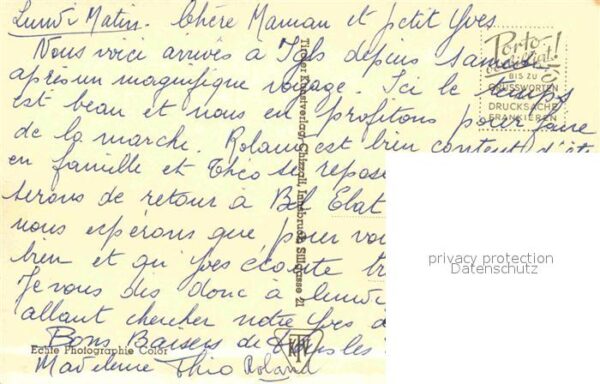 Lundi Matin. Chère Maman et petit Yves
Nous voici arrivés à Igls depuis samedi
après un magnifique voyage. Ici le temps
est beau et nous en profitons pour faire
de la marche. Roland est bien content d'êt
en famille et Théo se repose
serons de retour à Bel Ebat
nous espérons que pour vo
bien et qu'Yves écoute tr
Je vous dis donc à lundi
allant chercher notre Yves
Bons Baisers de tous les
Madeleine Théo Roland
Echte Photographie Color
Tiroler Kunstverlag Chizzali, Innsbruck Sillgasse 21
KTV
Porto-
BIS ZU
GRUSSWORTEN
DRUCKSACHE
FRANKIEREN
privacy protection
Datenschutz